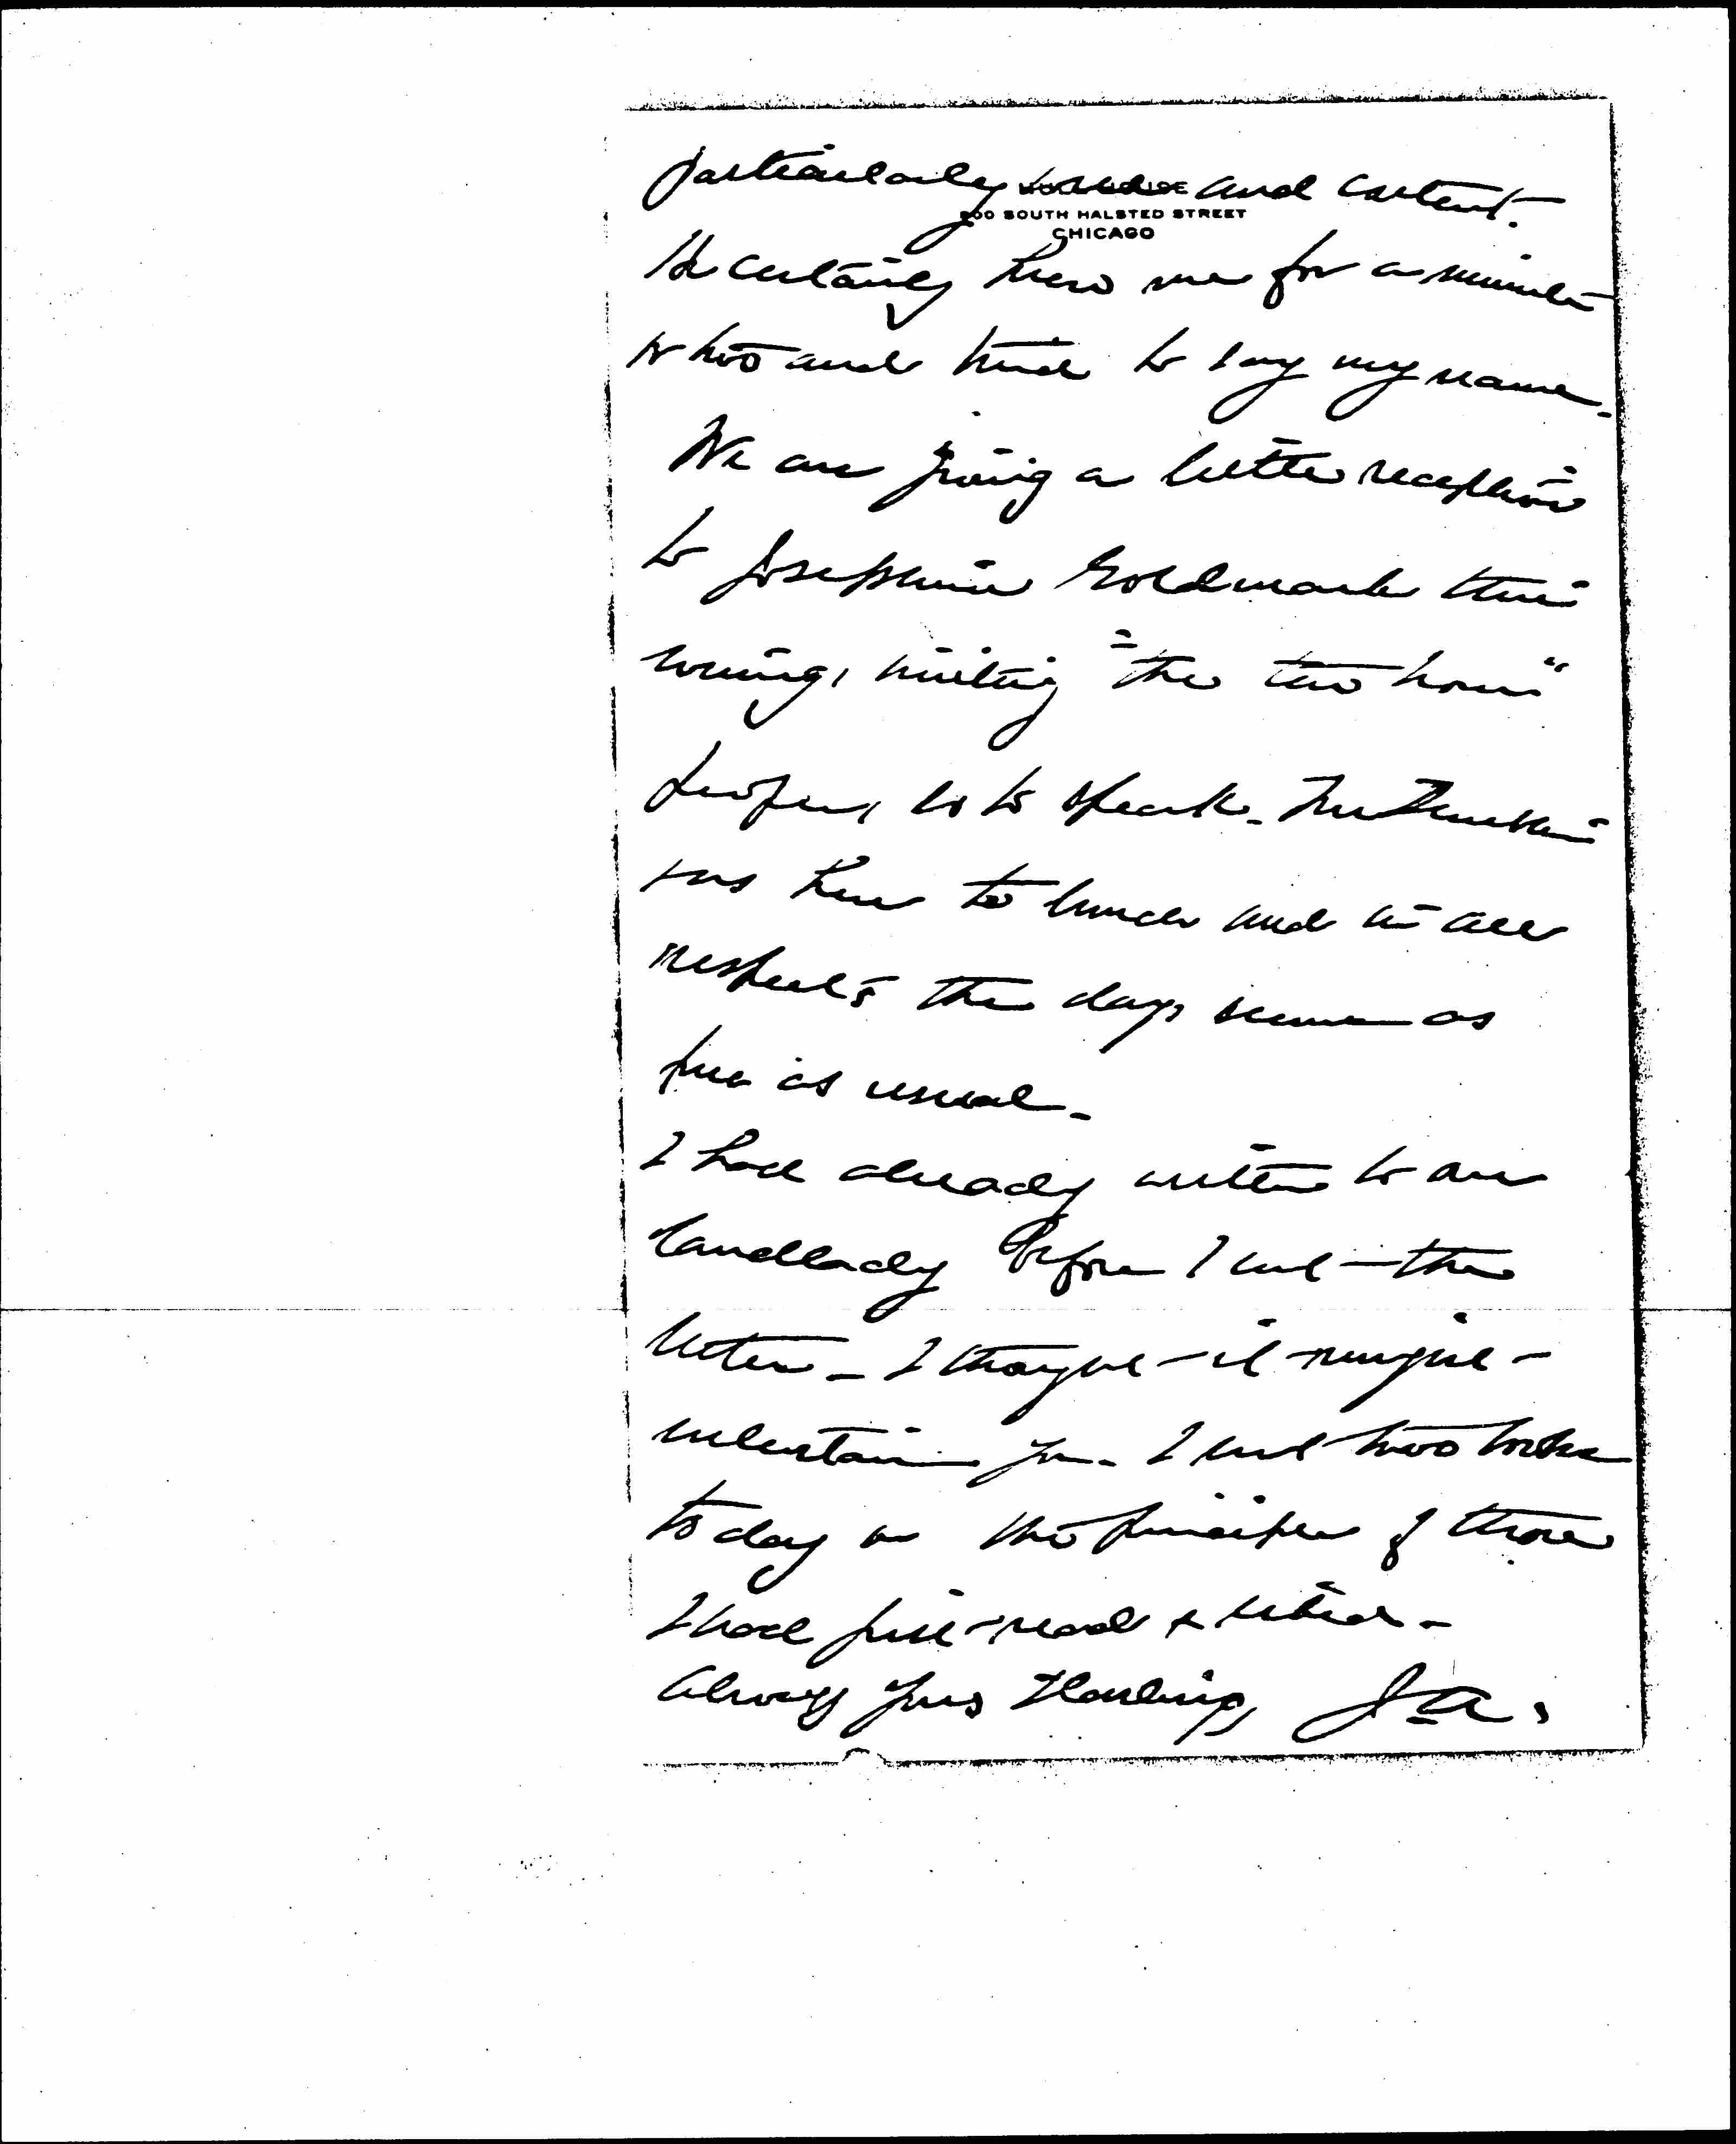 particularly and content.
HULL-HOUSE
800 SOUTH HALSTED STREET
CHICAGO
He certainly knew me for a minute
or two and tried to say my name.
We are giving a little reception
to Josephine Goldmark this
evening, inviting "the ten hour"
people, so to speak.
was here to lunch and in all
respects the days seem as
full as usual.
I had already written to our
landlady before I sent the
letter – I thought it might
entertain you. I send two books
today on the principle of those
I had just read &
Always yours Darling, J.A.